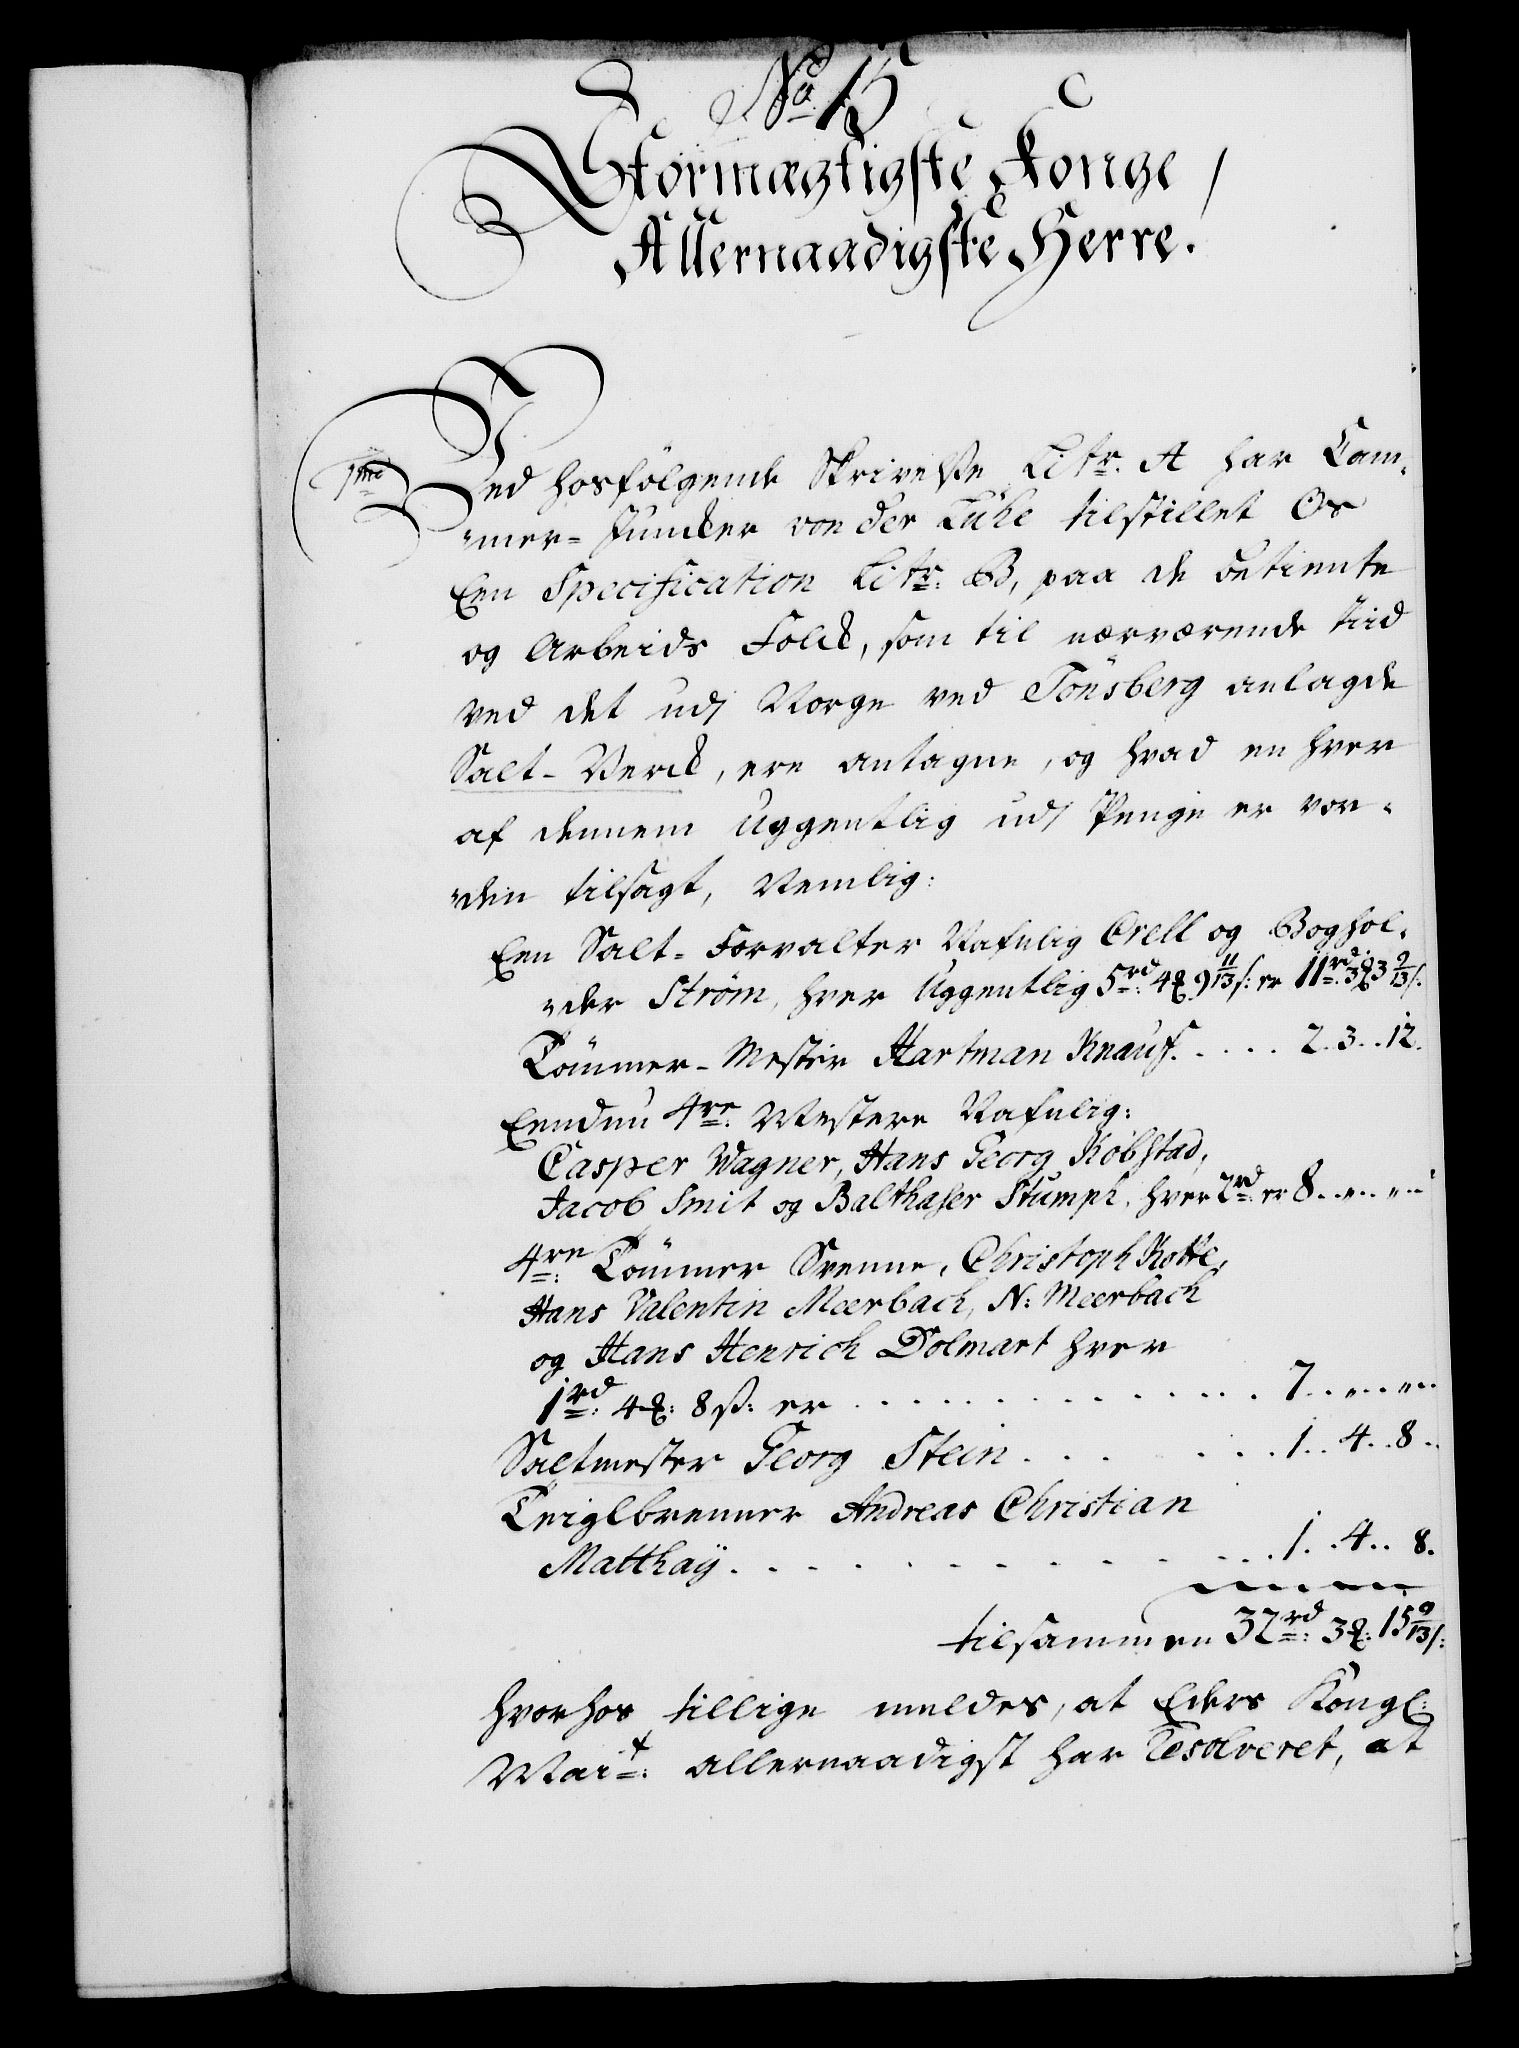 No. 15
Stormægtigste Konge,
Allernaadigste Herre.
1mo
Ved hosfølgende Skrivelse Litr. A har Cam-
mer-Juncker von der Lühe tilstillet Os
Een Specification Litr: B, paa de betiente
og Arbeids Folck, som til nærværende tiid
ved det udj Norge ved Tönsberg anlagde
Salt-Verck, ere antagne, og hvad en hver
af dennem Uggentlig udj Penge er vor-
den tilsagt, Nemlig:
Een Salt-Forvalter Nafnlig Orell og Boghol-
der Strøm, hver Uggentlig 5rd: 4 9 11/13 s: er 11rd: 3 3 9/13 s.
Tömmer-Mester Hartman Knauf. . . . . 2. 3. . 12.
Eendnu 4re: Mestere Nafnlig:
Casper Wagner, Hans Georg Kobstad,
Jacob Smit og Balthaser Stumph, hver 2rd: er 8. . „. . „. .
4re: Tömmer Svenne, Christoph Kotte,
Hans Valentin Meerbach, N: Meerbach
og Hans Henrich Dolmart hver
1rd: 4: 8 s: er . . . . . . . . . . . 7. . „. . „. .
Saltmester Georg Stein . . . . . . 1. . 4. . 8. .
Teiglbrenner Andreas Christian
Matthaÿ. . . . . . . . . . . 1. . 4. . 8.
tilsammen 32rd: 3: 15 9/13 s:
hvorhos tillige meldes, at Eders Kongl:
Mait: allernaadigst har Resolveret, at